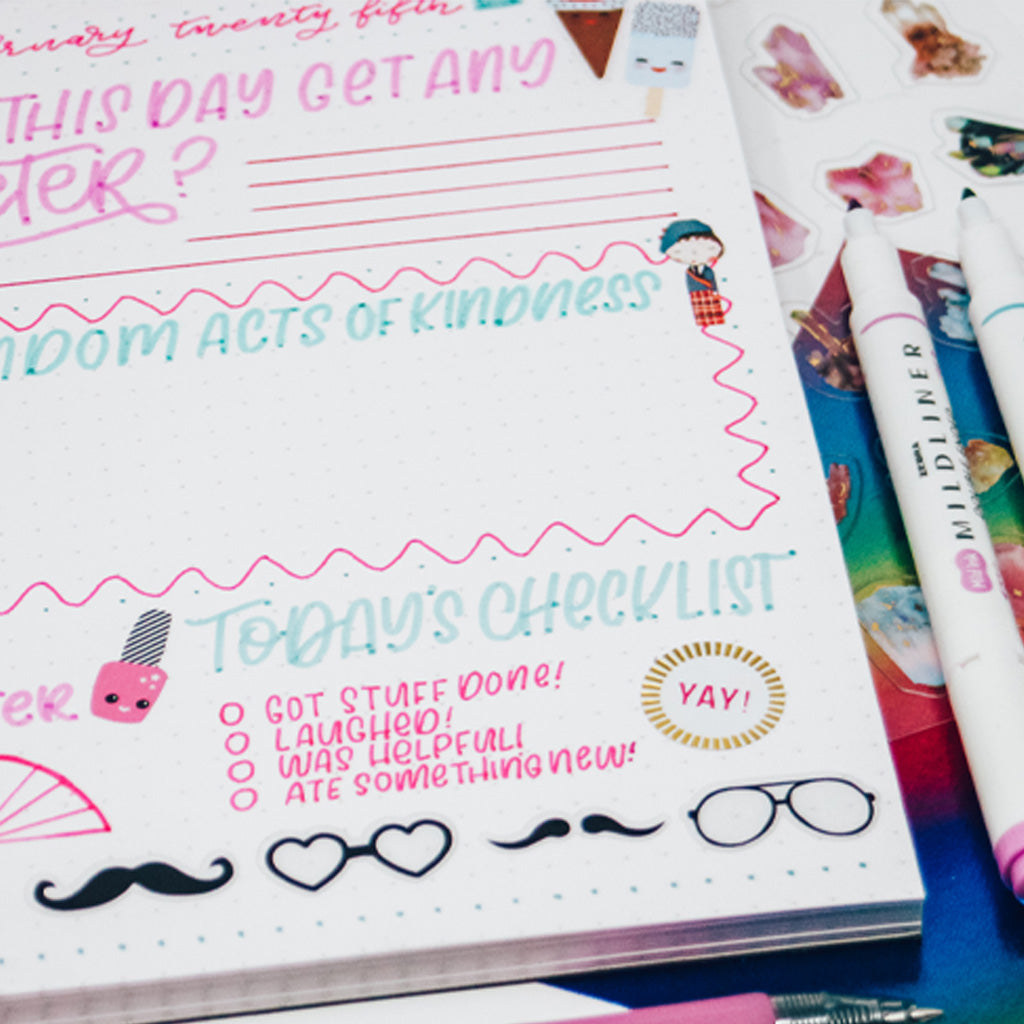 ruary twenty fifth
THIS DAY GET ANY
eTER?
NDOM ACTS OF KINDNESS
TODAY'S CHECKLIST
TER
GOT STUFF DONE!
LAUGHED!
WAS HELPFUL!
ATE SOMETHING NEW!
YAY!
ZEBRA
MILDLINER
Mild Ink